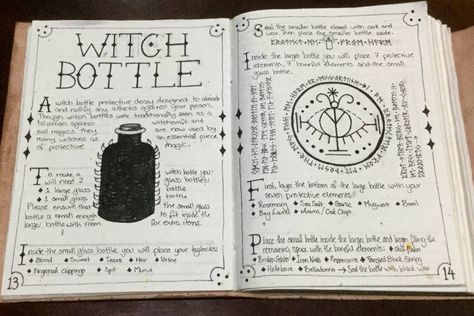 WITCH
BOTTLE
A witch bottle protective decoy designed to absorb
and nullify any attacks against your person.
Though witch bottles were traditionally seen as a
talisman against witchcraft and
evil magics they are now used by
many witches as an essential piece
of protective magic.
To make a witch bottle you
will need 2 glass bottles:
1 large glass bottle
1 small glass bottle
Please ensure that the small glass
bottle is small enough to fit inside the
larger bottle with room for extra items.
Inside the small glass bottle you will place your taglocks:
Blood Sweat Tears Hair Urine
Fingernail Clippings Spit Mucus
13
Seal the smaller bottle closed with cork and
wax, then place the smaller bottle aside.
Inside the larger bottle you will place 7 protective
elements, 7 baneful elements and the small
glass bottle.
First, layer the bottom of the large bottle with your
seven protective elements:
Rosemary Sea Salt Garlic Mugwort Basil
Bay Laurel Oak Chips
Place the small bottle inside the larger bottle and begin filling the
remaining space with the baneful elements:
Broken Glass Iron Nails Peppercorns Tangled Black String
Hellebore Belladonna → Seal the bottle with black wax
14